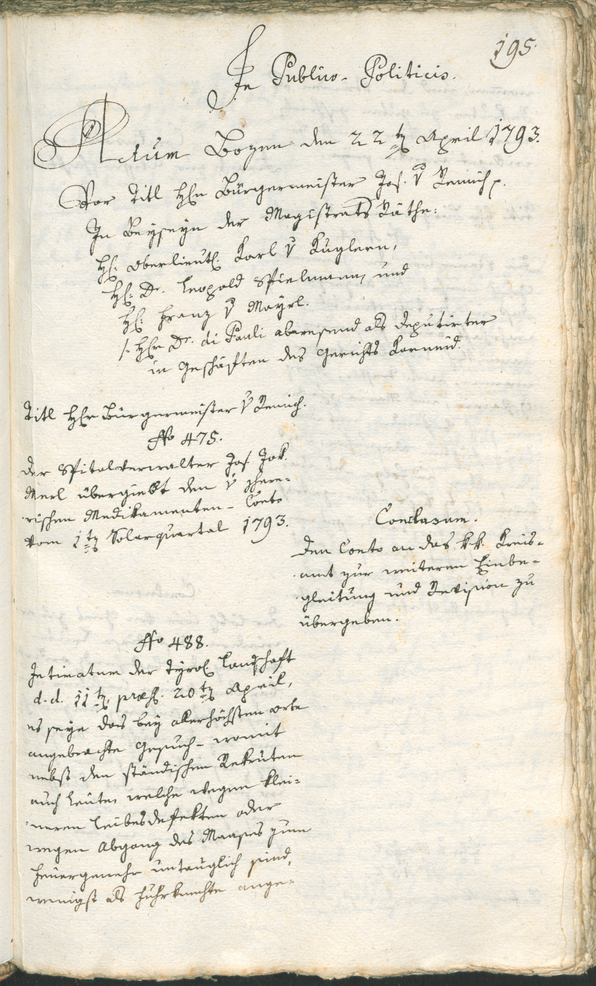 195.
In Publico-Politicis.
Actum Bozen den 22ten April 1793.
Vor Titl Hhn Bürgermeister Jos. v
In Beyseyn der Magistrats Räthe:
H: Oberlieut: Karl v Kuglern,
H: Dr. Leopold Spielmann, und
H: Franz v Mayrl.
/: Hhr Dr. di Pauli abwesend als Deputirter
in Geschäften des Gerichts Karneid.
Titl Hhr Bürgermeister v
No 475.
Der Spitalverwalter Jos Jak.
Merl übergiebt den v
rischen Medikamenten-Conto
vom 1ten Solarquartal 1793.
Conclusum.
Den Conto an das k.k. Kreis-
amt zur weiteren Einbe-
gleitung und Revision zu
übergeben.
No 488.
Intimatum der Tyrol. Landschaft
d.d. 11ten præs. 20ten April,
es seye das bey allerhöchsten orte
angebrachte Gesuch - womit
nebst den ständischen Rekruten
auch Leute, welche wegen klei-
neren Leibesdefekten oder
wegen Abgang des Maases zum
Feuergewehr untauglich sind,
wenigst als Fuhrknechte ange-